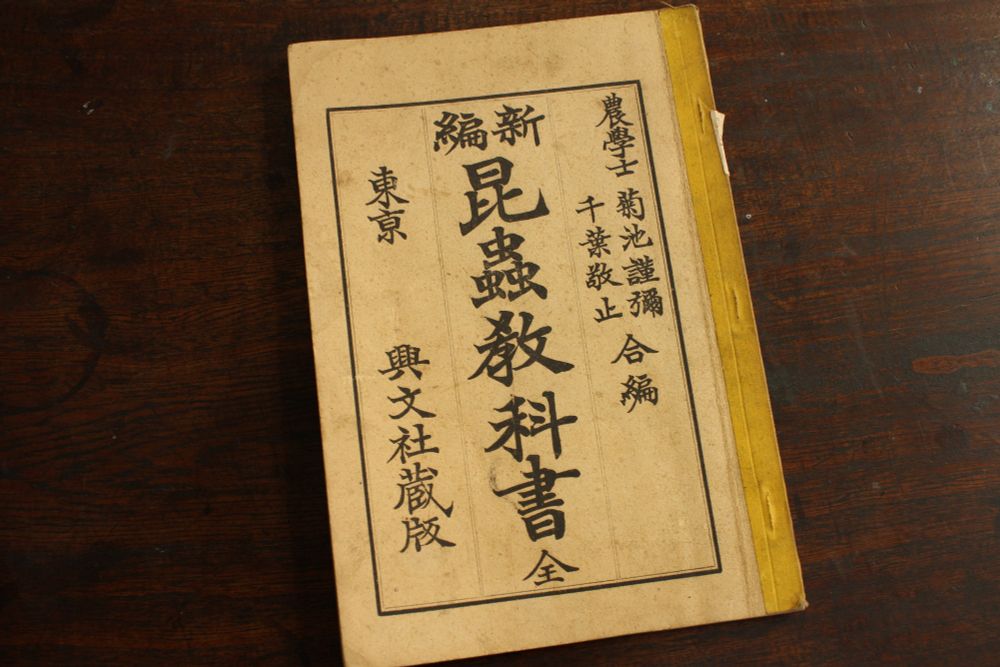 農學士
菊池謹彌
千葉敬止
合編
新編
昆蟲教科書
全
東京
興文社蔵版